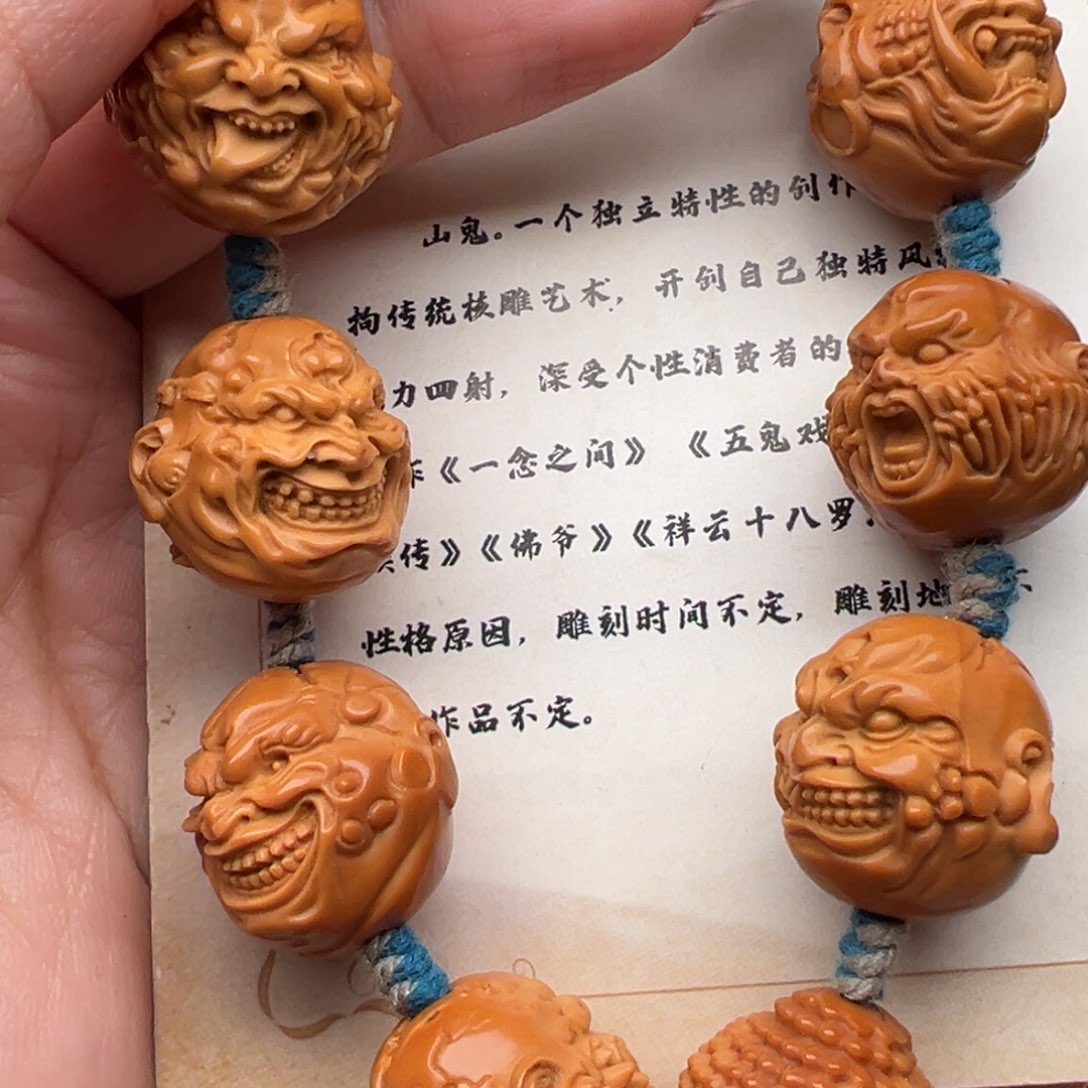 山鬼。一个独立特性的创作
拘传统核雕艺术，开创自己独特风
力四射，深受个性消费者的
作《一念之间》《五鬼戏
传》《佛爷》《祥云十八罗
性格原因，雕刻时间不定，雕刻地
作品不定。